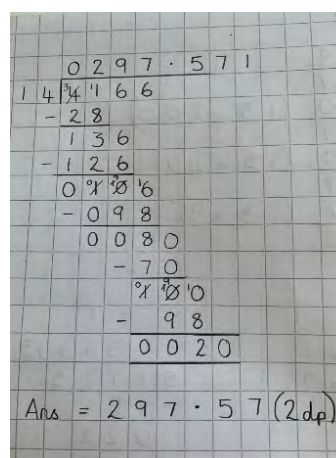 0297.571
14 4166
- 28
136
- 126
0106
- 098
0080
- 70
100
- 98
0020
Ans = 297.57 (2dp)